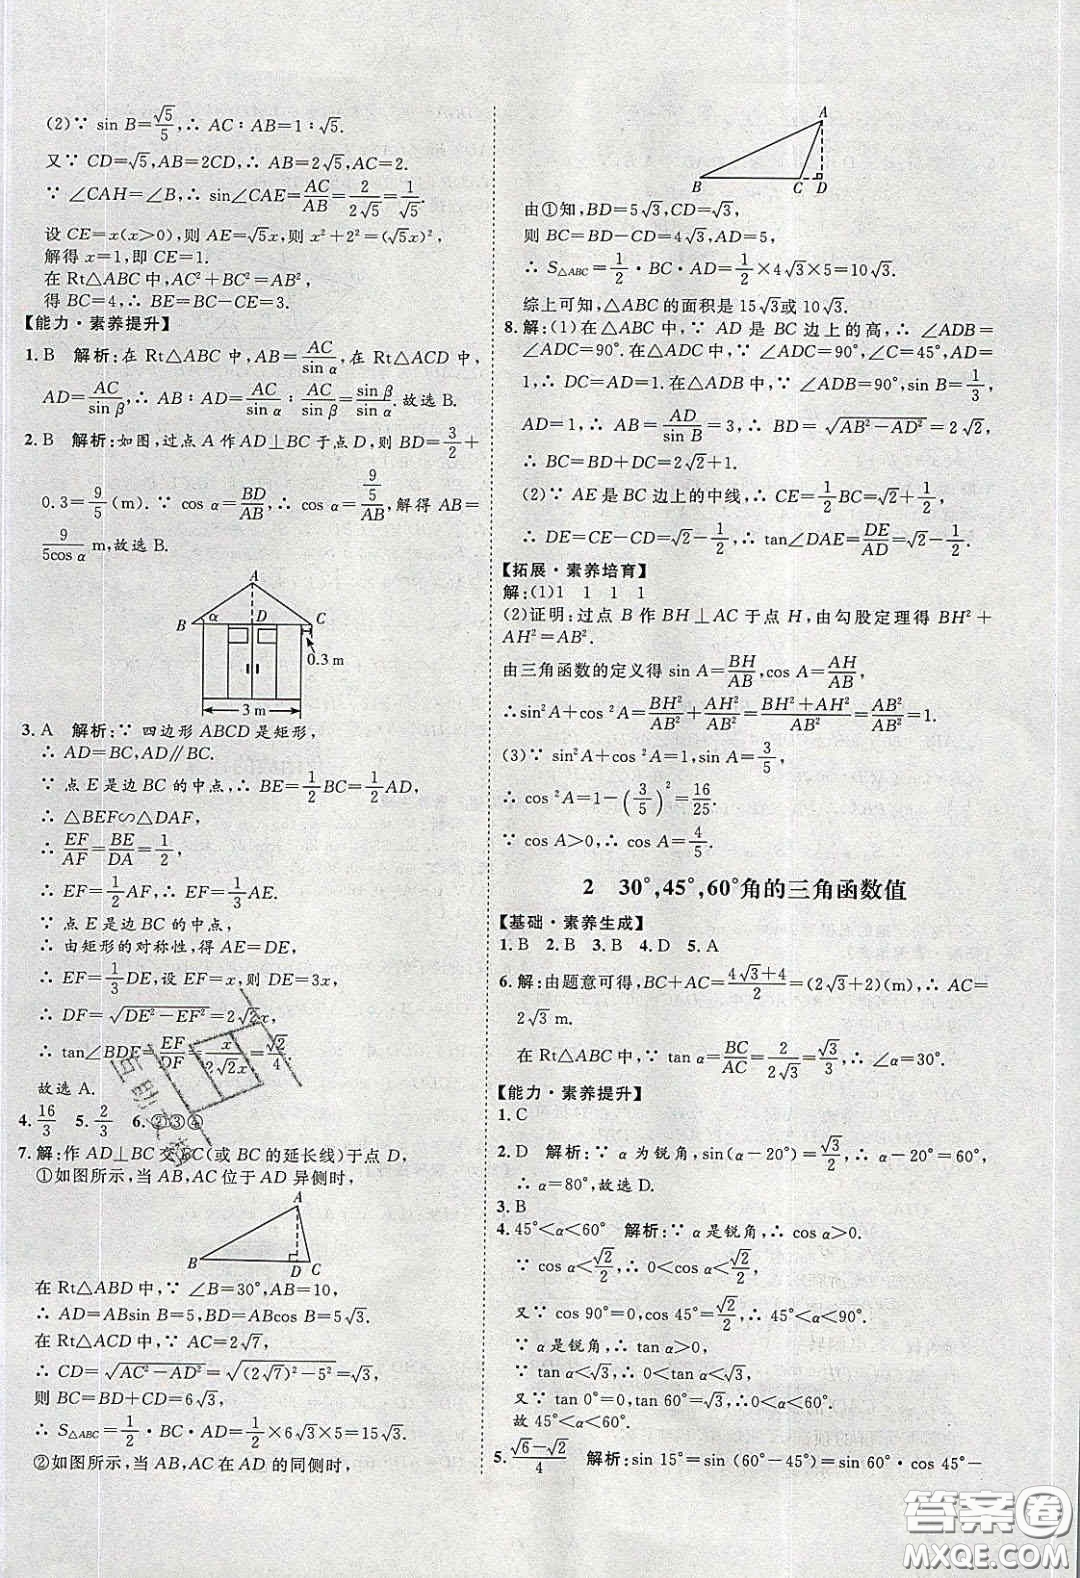 (2)∵ sin B=√5/5,∴ AC∶AB=1∶√5.
又∵ CD=√5,AB=2CD,∴ AB=2√5,AC=2.
∵ ∠CAH=∠B,∴ sin∠CAE=AC/AB=2/(2√5)=1/√5.
设 CE=x(x>0),则 AE=√5x,则 x²+2²=(√5x)²,
解得 x=1,即 CE=1.
在 Rt△ABC 中,AC²+BC²=AB²,
得 BC=4,∴ BE=BC-CE=3.
【能力·素养提升】
1. B 解析:在 Rt△ABC 中,AB=AC/sin α,在 Rt△ACD 中,
AD=AC/sin β,∴ AB∶AD=AC/sin α∶AC/sin β=sin β/sin α.故选 B.
2. B 解析:如图,过点 A 作 AD⊥BC 于点 D,则 BD=3/2+
0.3=9/5(m).∵ cos α=BD/AB,∴ cos α=(9/5)/AB,解得 AB=
9/(5cos α) m,故选 B.
A
B α D C
0.3 m
3 m
3. A 解析:∵ 四边形 ABCD 是矩形,
∴ AD=BC,AD∥BC.
∵ 点 E 是边 BC 的中点,∴ BE=1/2BC=1/2AD,
∴ △BEF∽△DAF,
∴ EF/AF=BE/DA=1/2,
∴ EF=1/2AF,∴ EF=1/3AE.
∵ 点 E 是边 BC 的中点,
∴ 由矩形的对称性,得 AE=DE,
∴ EF=1/3DE,设 EF=x,则 DE=3x,
∴ DF=√(DE²-EF²)=2√2x,
∴ tan∠BDE=EF/DF=x/(2√2x)=√2/4.
故选 A.
4. 16/3 5. 2/3 6. ②③④
7. 解:作 AD⊥BC 交 BC(或 BC 的延长线)于点 D,
①如图所示,当 AB,AC 位于 AD 异侧时,
A
B D C
在 Rt△ABD 中,∵ ∠B=30°,AB=10,
∴ AD=ABsin B=5,BD=ABcos B=5√3.
在 Rt△ACD 中,∵ AC=2√7,
∴ CD=√(AC²-AD²)=√((2√7)²-5²)=√3,
则 BC=BD+CD=6√3,
∴ S△ABC=1/2·BC·AD=1/2×6√3×5=15√3.
②如图所示,当 AB,AC 在 AD 的同侧时,
A
B C D
由①知,BD=5√3,CD=√3,
则 BC=BD-CD=4√3,AD=5,
∴ S△ABC=1/2·BC·AD=1/2×4√3×5=10√3.
综上可知,△ABC 的面积是 15√3或 10√3.
8. 解:(1)在△ABC 中,∵ AD 是 BC 边上的高,∴ ∠ADB=
∠ADC=90°.在△ADC 中,∵ ∠ADC=90°,∠C=45°,AD=
1,∴ DC=AD=1.在△ADB 中,∵ ∠ADB=90°,sin B=1/3,
AD=1,∴ AB=AD/sin B=3,∴ BD=√(AB²-AD²)=2√2,
∴ BC=BD+DC=2√2+1.
(2)∵ AE 是 BC 边上的中线,∴ CE=1/2BC=√2+1/2,
∴ DE=CE-CD=√2-1/2,∴ tan∠DAE=DE/AD=√2-1/2.
【拓展·素养培育】
解:(1)1 1 1 1
(2)证明:过点 B 作 BH⊥AC 于点 H,由勾股定理得 BH²+
AH²=AB².
由三角函数的定义得 sin A=BH/AB,cos A=AH/AB,
∴sin²A+cos²A=BH²/AB²+AH²/AB²=(BH²+AH²)/AB²=AB²/AB²=1.
(3)∵ sin²A+cos²A=1,sin A=3/5,
∴ cos²A=1-(3/5)²=16/25.
∵ cos A>0,∴ cos A=4/5.
2 30°,45°,60°角的三角函数值
【基础·素养生成】
1. B 2. B 3. B 4. D 5. A
6. 解:由题意可得,BC+AC=(4√3+4)/2=(2√3+2)(m),∴ AC=
2√3 m.
在 Rt△ABC 中,∵ tan α=BC/AC=2/(2√3)=√3/3,∴ ∠α=30°.
【能力·素养提升】
1. C
2. D 解析:∵ α 为锐角,sin(α-20°)=√3/2,∴ α-20°=60°,
∴ α=80°,故选 D.
3. B
4. 45°<α<60° 解析:∵ α 是锐角,∴ cos α>0.
∵ cos α<√2/2,∴ 0<cos α<√2/2.
又∵ cos 90°=0,cos 45°=√2/2,∴ 45°<α<90°.
∵ α 是锐角,∴ tan α>0.
∵ tan α<√3,∴ 0<tan α<√3.
又∵ tan 0°=0,tan 60°=√3,∴0<α<60°.
故 45°<α<60°.
5. (√6-√2)/4 解析:sin 15°=sin (60°-45°)=sin 60°·cos 45°-
互助文档
答案圈
MXQE.COM